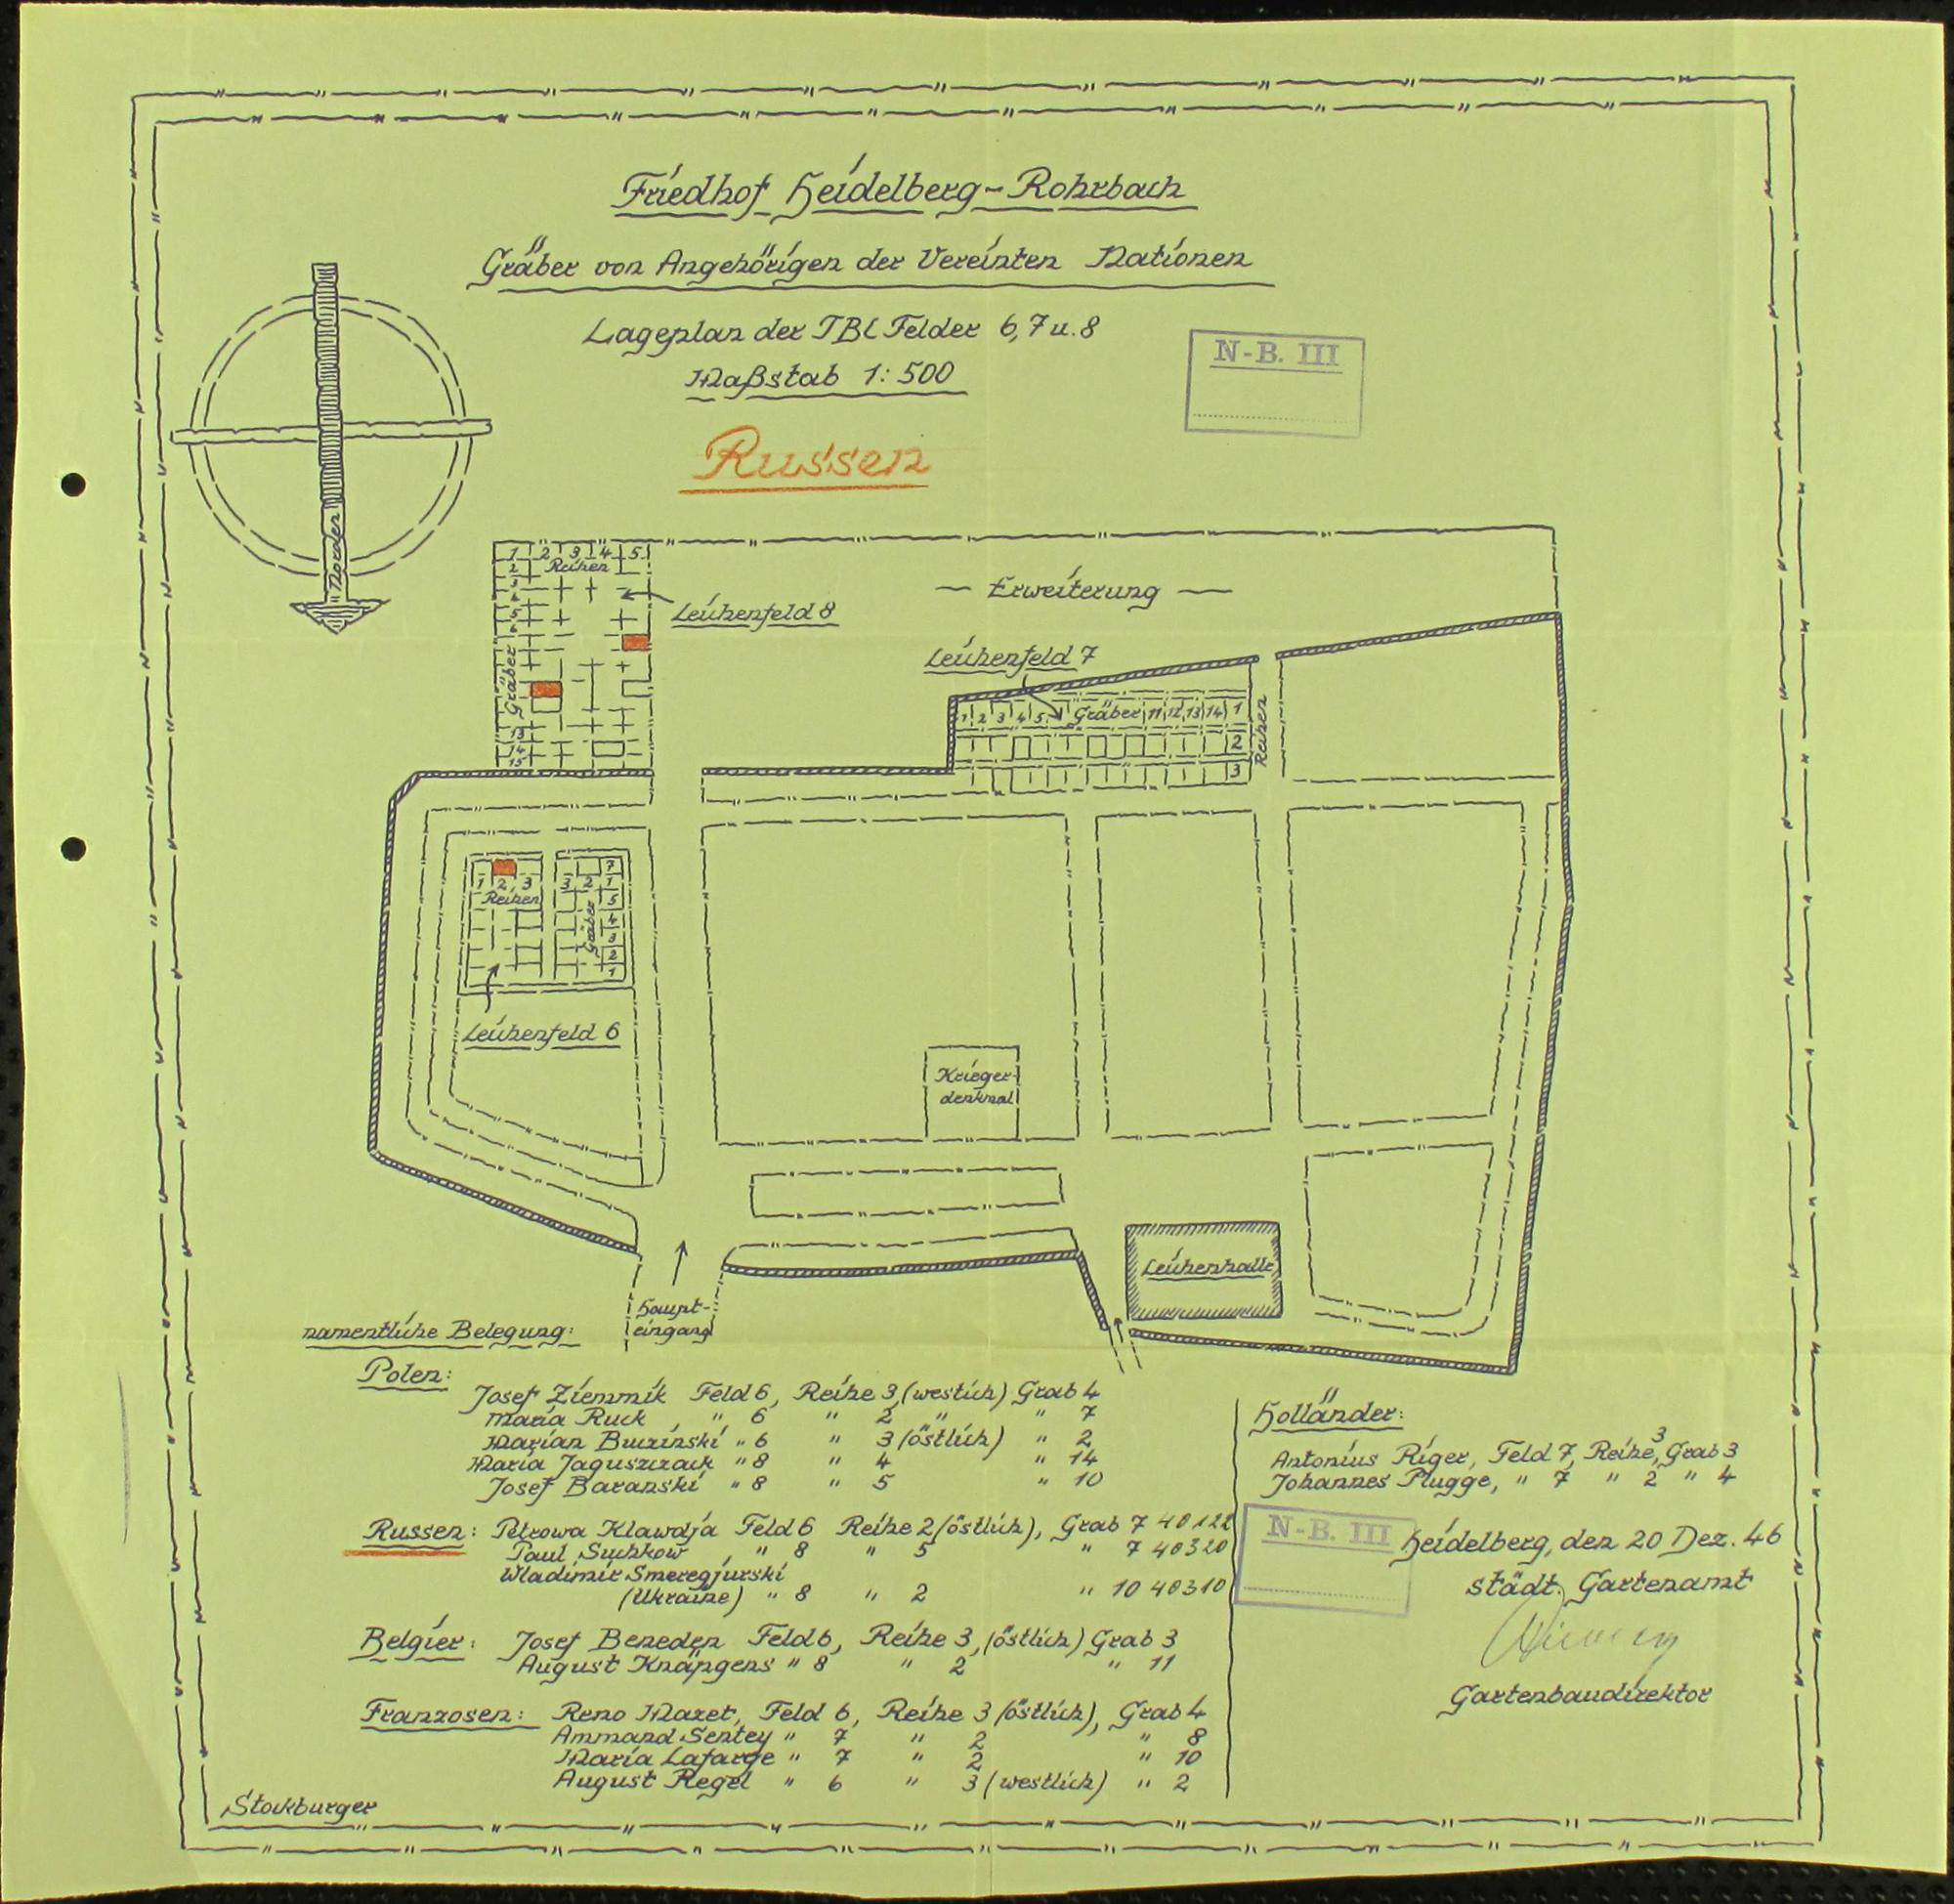 Friedhof Heidelberg-Rohrbach
Gräber von Angehörigen der Vereinten Nationen
Lageplan der TBL Felder 6, 7 u. 8
Maßstab 1:500
N-B. III
Russen
Norden
1 2 3 4 5
Reihen
2
3
4
5
6
Gräber
13
14
15
Leichenfeld 8
— Erweiterung —
Leichenfeld 7
1 2 3 4 5 Gräber 11 12 13 14 1
2
3
Reihen
1 2 3
Reihen
3 2 1
7
5
4
3
2
1
Gräber
Leichenfeld 6
Krieger-
denkmal
Leichenhalle
Haupt-
eingang
namentliche Belegung:
Polen:
Josef Ziemmik Feld 6, Reihe 3 (westlich) Grab 4
Maria Ruck, " 6 " 2 " " 7
Marian Buczinski " 6 " 3 (östlich) " 2
Maria Jaguszczack " 8 " 4 " 14
Josef Baranski " 8 " 5 " 10
Russen: Petrowa Klawdja Feld 6 Reihe 2 (östlich), Grab 7 40122
Paul Suchkow, " 8 " 5 " 7 40320
Wladimir Smeregjurski
(Ukraine) " 8 " 2 " 10 40310
Belgier: Josef Beneden Feld 6, Reihe 3, (östlich) Grab 3
August Knäpgens " 8 " 2 " 11
Franzosen: Reno Mazet, Feld 6, Reihe 3 (östlich), Grab 4
Ammand Sentey " 7 " 2 " 8
Maria Lafarge " 7 " 2 " 10
August Regel " 6 " 3 (westlich) " 2
Holländer:
Antonius Riger, Feld 7, Reihe 3, Grab 3
Johannes Plugge, " 7 " 2 " 4
N-B. III
Heidelberg, den 20 Dez. 46
Städt. Gartenamt
Gartenbaudirektor
Stockburger